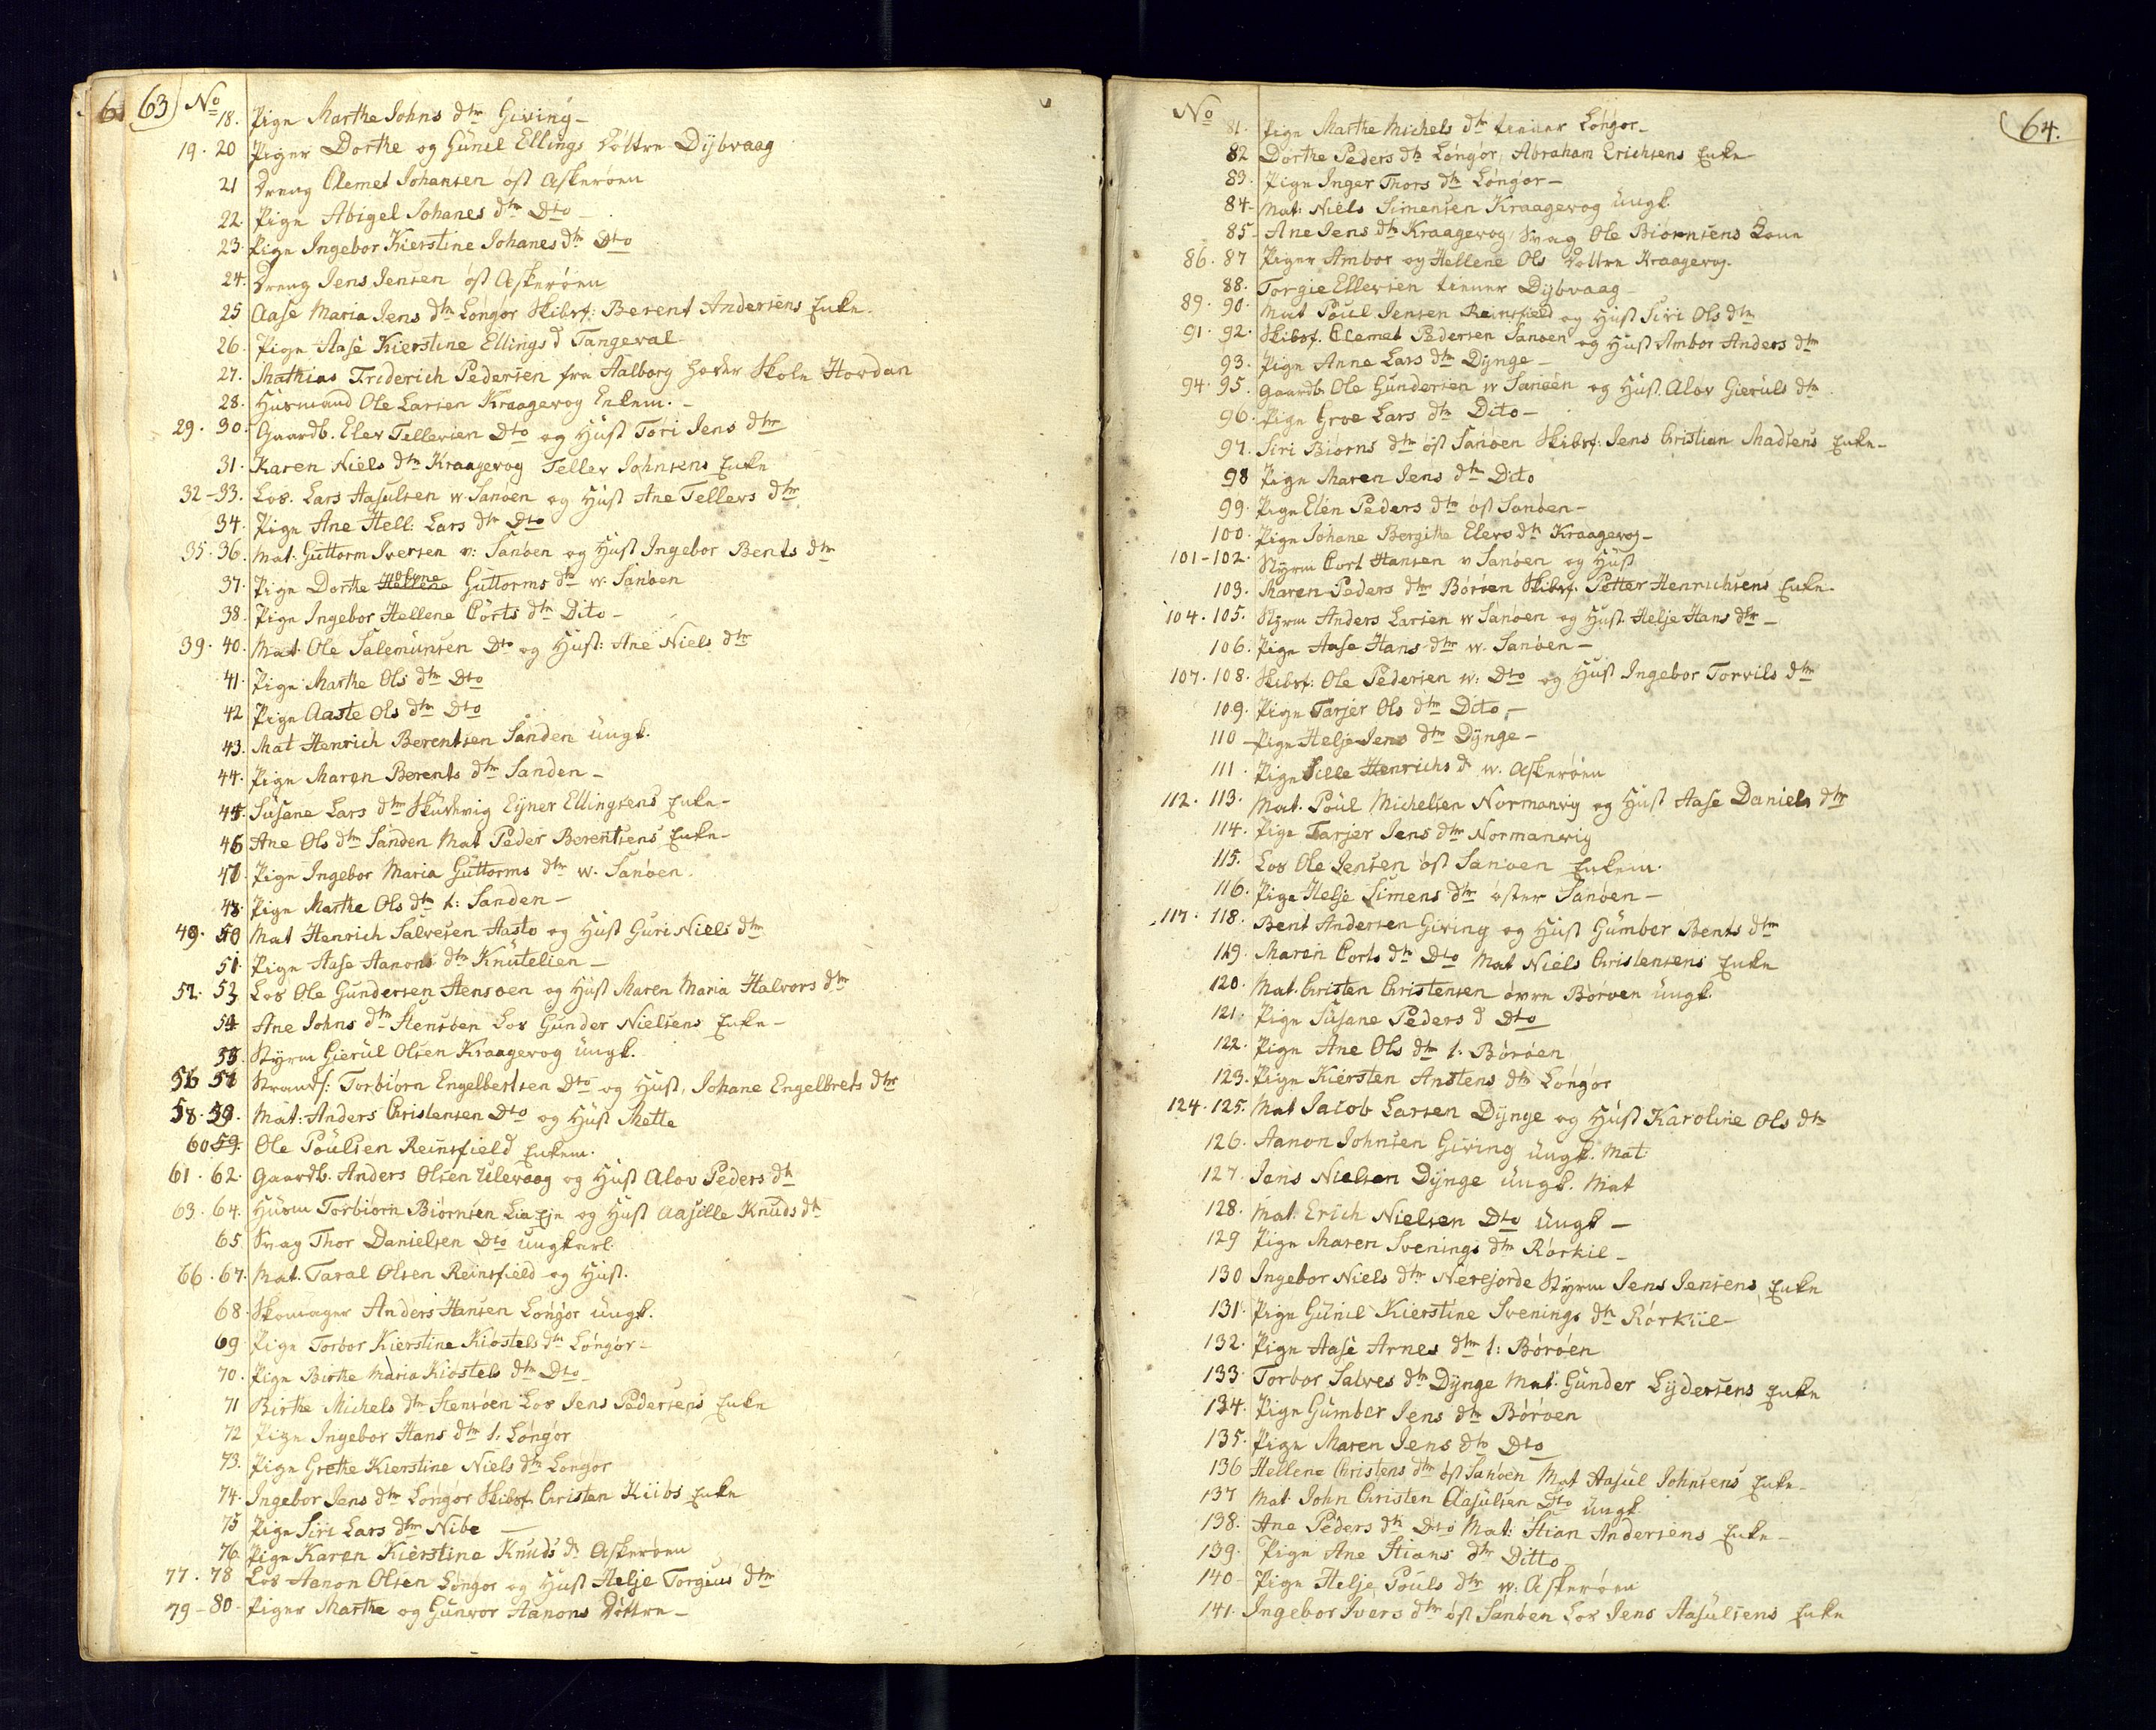 6 63 No
18. Pige Marthe Johns dtr Giving-
19. 20 Piger Dorthe og Gunil Ellings Döttre Dybvaag
21 Dreng Clemet Johansen öst Askeröen
22. Pige Abigel Johanes dtr Dto
23. Pige Ingebor Kierstine Johanes dtr Dto
24. Dreng Jens Jensen öst Askeröen
25 Aase Maria Jens dtr Longör Skibsf: Berent Andersens Enke.
26. Pige Aase Kierstine Ellings d Tangeval
27. Mathias Friderich Pedersen fra Aalborg Skole Hordan
28. Husmand Ole Larsen Kraagevog Enkem. -
29. 30. Gaardb. Elev Tellevsen Dto og Hust Tori Jens dtr
31. Karen Niels dtr Kraagevog Tellev Johnsens Enke
32-33. Los. Lars Aasulsen w. Sanöen og Hust Ane Tellevs dtr
34. Pige Ane Hell. Lars dtr Dto
35. 36. Mat: Guttorm Iversen v: Sanöen og Hust Ingebor Bents dtr
37. Pige Dorthe Hellene Guttorms dtr w. Sanöen
38. Pige Ingebor Hellene Corts dtr Dito-
39. 40. Mat. Ole Salemunsen Dto og Hust: Ane Niels dtr
41. Pige Marthe Ols dtr Dto
42 Pige Aaste Ols dtr Dto
43. Mat Henrich Berentsen Sanden ungk.
44. Pige Maren Berents dtr Sanden-
45. Susane Lars dtr Skutevig Eyner Ellingsens Enke-
46 Ane Ols dtr Sanden Mat Peder Berentsens Enke-
47. Pige Ingebor Maria Guttorms dtr w. Sanöen.
48. Pige Marthe Ols dtr t: Sanden-
49. 50 Mat Henrich Salvesen Hasto og Hust Guri Niels dtr
51. Pige Aase Aanons dtr Knutelien-
52. 53 Los Ole Gundersen Stensöen og Hust Maren Maria Halvors dtr
54 Ane Johns dtr Stensöen Los Gunder Nielsens Enke-
55. Styrm Gierul Olsen Kraagevog ungk.
56 57 Strands: Torbiorn Engelbertsen Dto og Hust, Johane Engelbrets dtr
58. 59. Mat: Anders Christensen Dto og Hust Mette
60 59. Ole Poulsen Reinsfield Enkem.
61. 62. Gaardb. Anders Olsen Ulevaag og Hust Alov Peders dtr
63. 64. Husm Torbiorn Biornsen Lia Eje og Hust Aasille Knuds dtr
65. Svag Thor Danielsen Dto ungkarl.
66. 67. Mat. Taral Olsen Reinsfield og Hust.
68. Skomager Anders Hansen Longör ungk.
69 Pige Torbor Kierstine Kiostels dtr Longör-
70. Pige Birthe Maria Kiostels dtr Dto
71 Birthe Michels dtr Stensöen Los Jens Pedersens Enke
72 Pige Ingebor Hans dtr t: Longör
73. Pige Grethe Kierstine Niels dtr Longör
74. Ingebor Jens dtr Longör Skibsf. Christen Kiibs Enke
75 Pige Siri Lars dtr Nibe -
76. Pige Karen Kierstine Knuds d Askeröen
77. 78 Los Aanon Olsen Longör og Hust Helje Torgius dtr
79-80- Piger Marthe og Gunvor Aanons Döttre-
No 64.
81. Pige Marthe Michels dtr tiener Longör-
82 Dorthe Peders dtr Longör, Abraham Erichsens Enke
83. Pige Inger Thors dtr Longör-
84- Mat: Niels Simensen Kraagevog ungk.
85- Ane Jens dtr Kraagevog, Svag Ole Biörnsens Kone
86. 87 Piger Ambor og Hellene Ols Dottre Kraagevog.
88. Torgie Ellevsen tiener Dybvaag
89. 90. Mat Poul Jensen Reinsfield og Hust Siri Ols dtr
91. 92. Skibsf. Clemet Pedersen Sanöen og Hust Ambor Anders dtr
93. Pige Anne Lars dtr Dynge-
94. 95. Gaardb. Ole Gundersen w Sanöen og Hust. Alov Gieruls dtr
96. Pige Groe Lars dtr Dito-
97. Siri Biorns dtr öst Sanöen Skibsf: Jens Christian Madsens Enke-
98 Pige Maren Jens dtr Dito
99. Pige Elen Peders dtr öst Sanöen-
100. Pige Johane Bergithe Elevs dtr Kraagevog-
101-102. Styrm Cort Hansen v Sanöen og Hust
103. Maren Peders dtr Böröen Skibsf. Petter Henrichsens Enke-
104. 105. Styrm Anders Larsen w Sanöen og Hust Helje Hans dtr-
106. Pige Aase Hans dtr w. Sanöen-
107. 108. Skibsf: Ole Pedersen w: Dto og Hust Ingebor Torvils dtr
109. Pige Tarjer Ols dtr Dito,-
110- Pige Helje Jens dtr Dynge-
111. Pige Sille Henrichs d w. Askeröen
112. 113. Mat. Poul Michelsen Normanvig og Hust Aase Daniels dtr
114. Pige Tarjer Jens dtr Normanvig
115. Los Ole Jensen öst Sanöen Enkem.
116. Pige Helje Simens dtr öster Sanöen-
117. 118. Bent Andersen Giving og Hust Gumber Bents dtr
119. Maren Corts dtr Dto Mat Niels Christensens Enke
120. Mat. Christen Christensen övre Böröen ungk.
121. Pige Susane Peders d Dto
122. Pige Ane Ols dtr t: Böröen
123. Pige Kiersten Anstens dtr Longör
124. 125. Mat Jacob Larsen Dynge og Hust Karoline Ols dtr
126. Aanon Johnsen Giving ungk. Mat
127. Jens Nielsen Dynge ungk. Mat
128. Mat. Erich Nielsen Dto ungk-
129 Pige Maren Svenings dtr Rörkil-
130 Ingebor Niels dtr Nerejorde Styrm Jens Jensens Enke
131. Pige Gunil Kierstine Svenings dtr Rörkiil-
132. Pige Aase Arnes dtr t: Böröen
133. Torbor Salves dtr Dynge Mat. Gunder Lydersens Enke
134. Pige Gumber Jens dtr Böröen
135. Pige Maren Jens dtr Dto
136 Hellene Christens dtr öst Sanöen Mat Aasul Johnsens Enke-
137 Mat. John Christen Aasulsen Dto ungk.
138. Ane Peders dtr Dto Mat: Stian Andersens Enke-
139. Pige Ane Stians dtr Ditto
140- Pige Helje Pouls dtr w: Askeröen
141. Ingebor Ivers dtr öst Sanöen Los Jens Aasulsens Enke